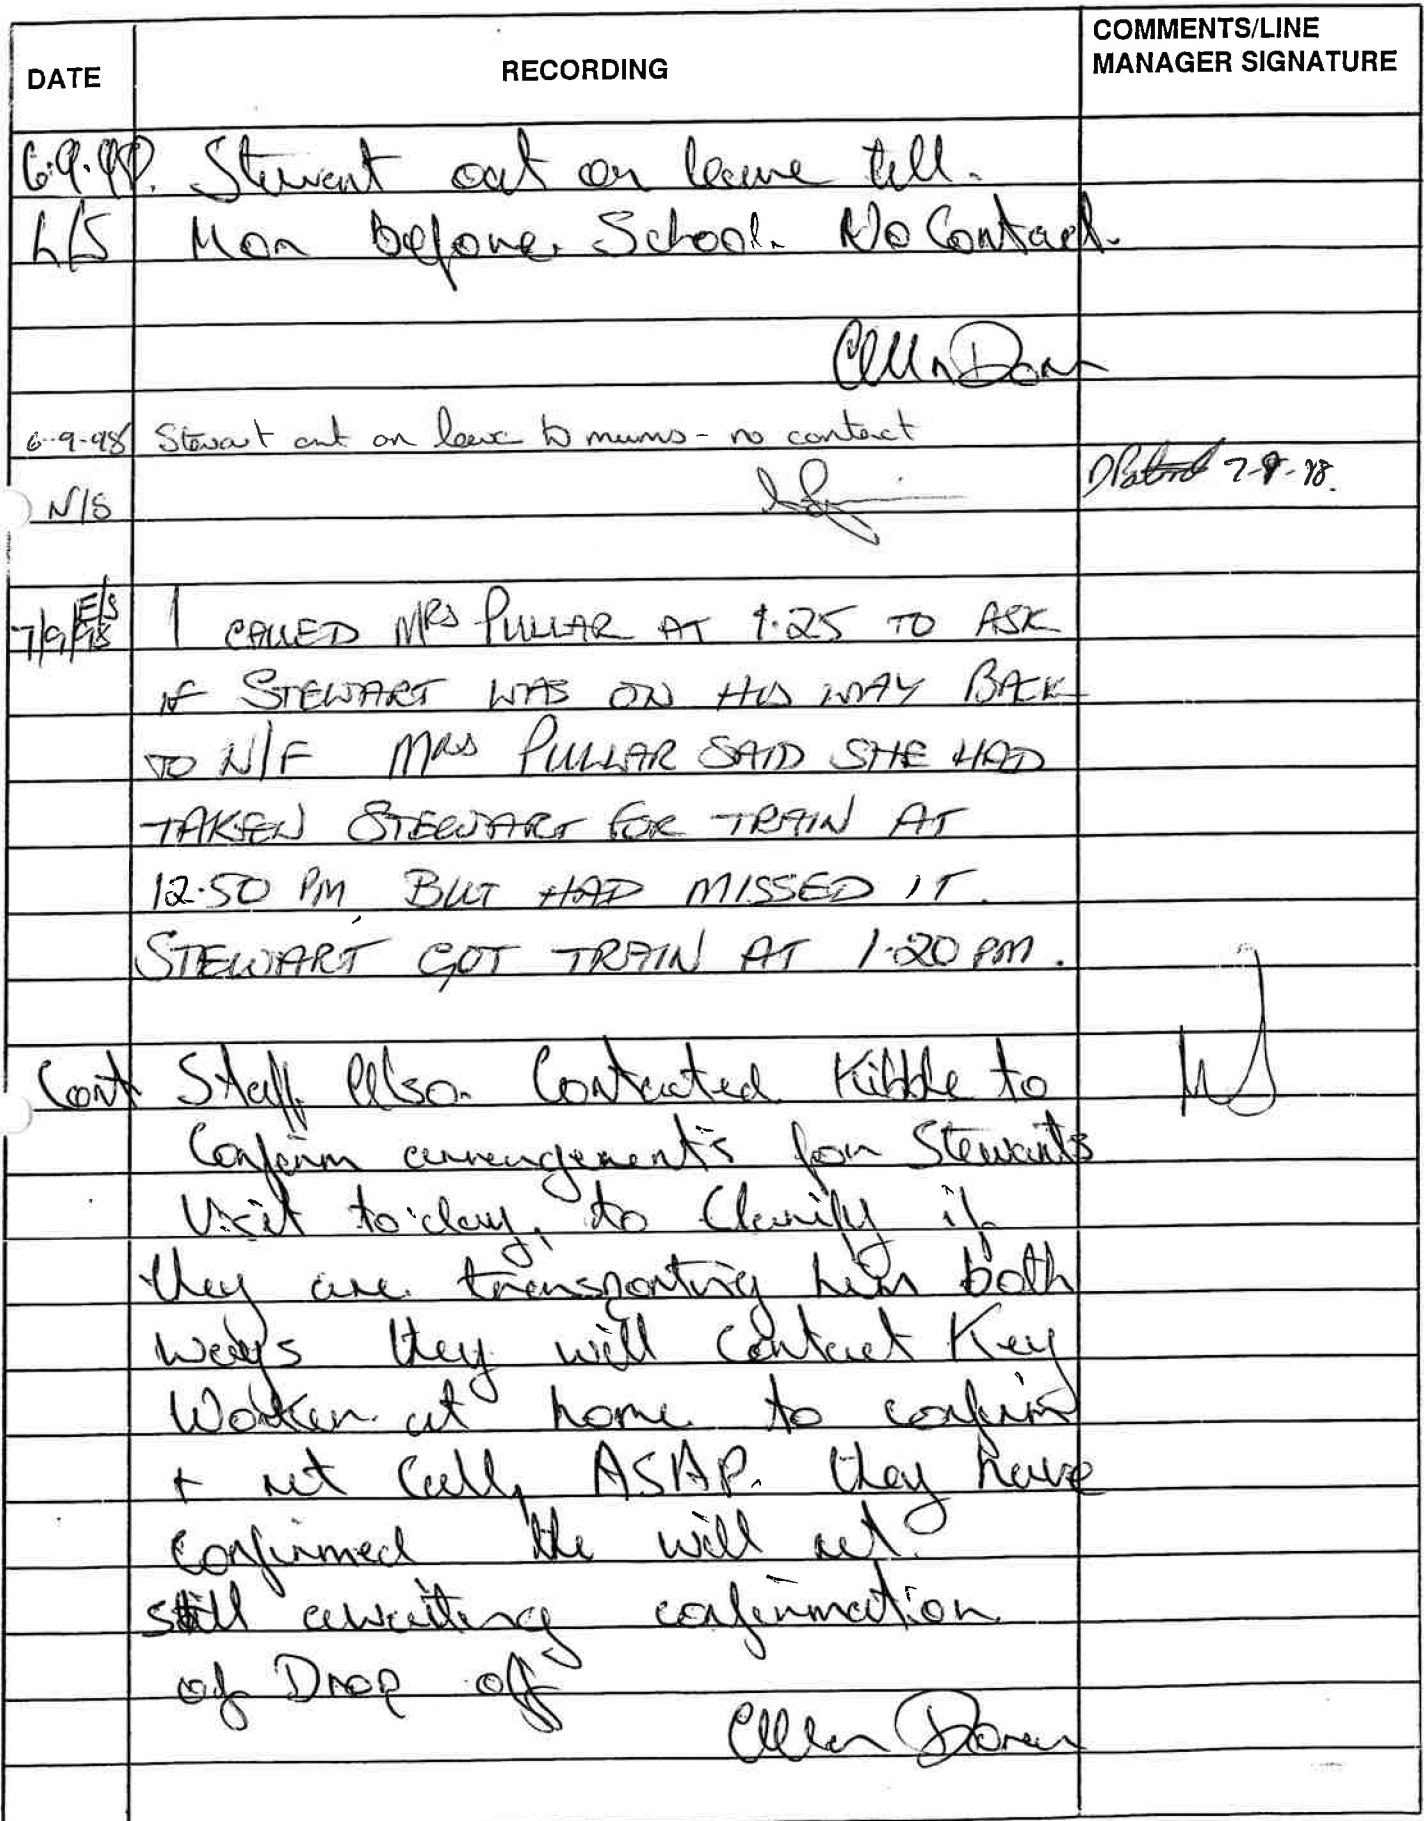 DATE
RECORDING
COMMENTS/LINE
MANAGER SIGNATURE
6.9.98. Stewart out on leave till.
L/S Mon before School. No Contact.
6-9-98 Stewart out on leave to mums - no contact
N/S
7-9-98.
7/9/98 E/S I CALLED MRS PULLAR AT 1.25 TO ASK
IF STEWART WAS ON HIS WAY BACK
TO N/F MRS PULLAR SAID SHE HAD
TAKEN STEWART FOR TRAIN AT
12.50 PM BUT HAD MISSED IT.
STEWART GOT TRAIN AT 1.20 PM.
Cont Staff also Contacted Kibble to
Confirm arrangement's for Stewarts
Visit to day, to Clarify if
they are transporting him both
ways they will contact Key
Worker at home to confirm
+ ret Call, ASAP. they have
confirmed the will ret.
still awaiting confirmation
of Drop off